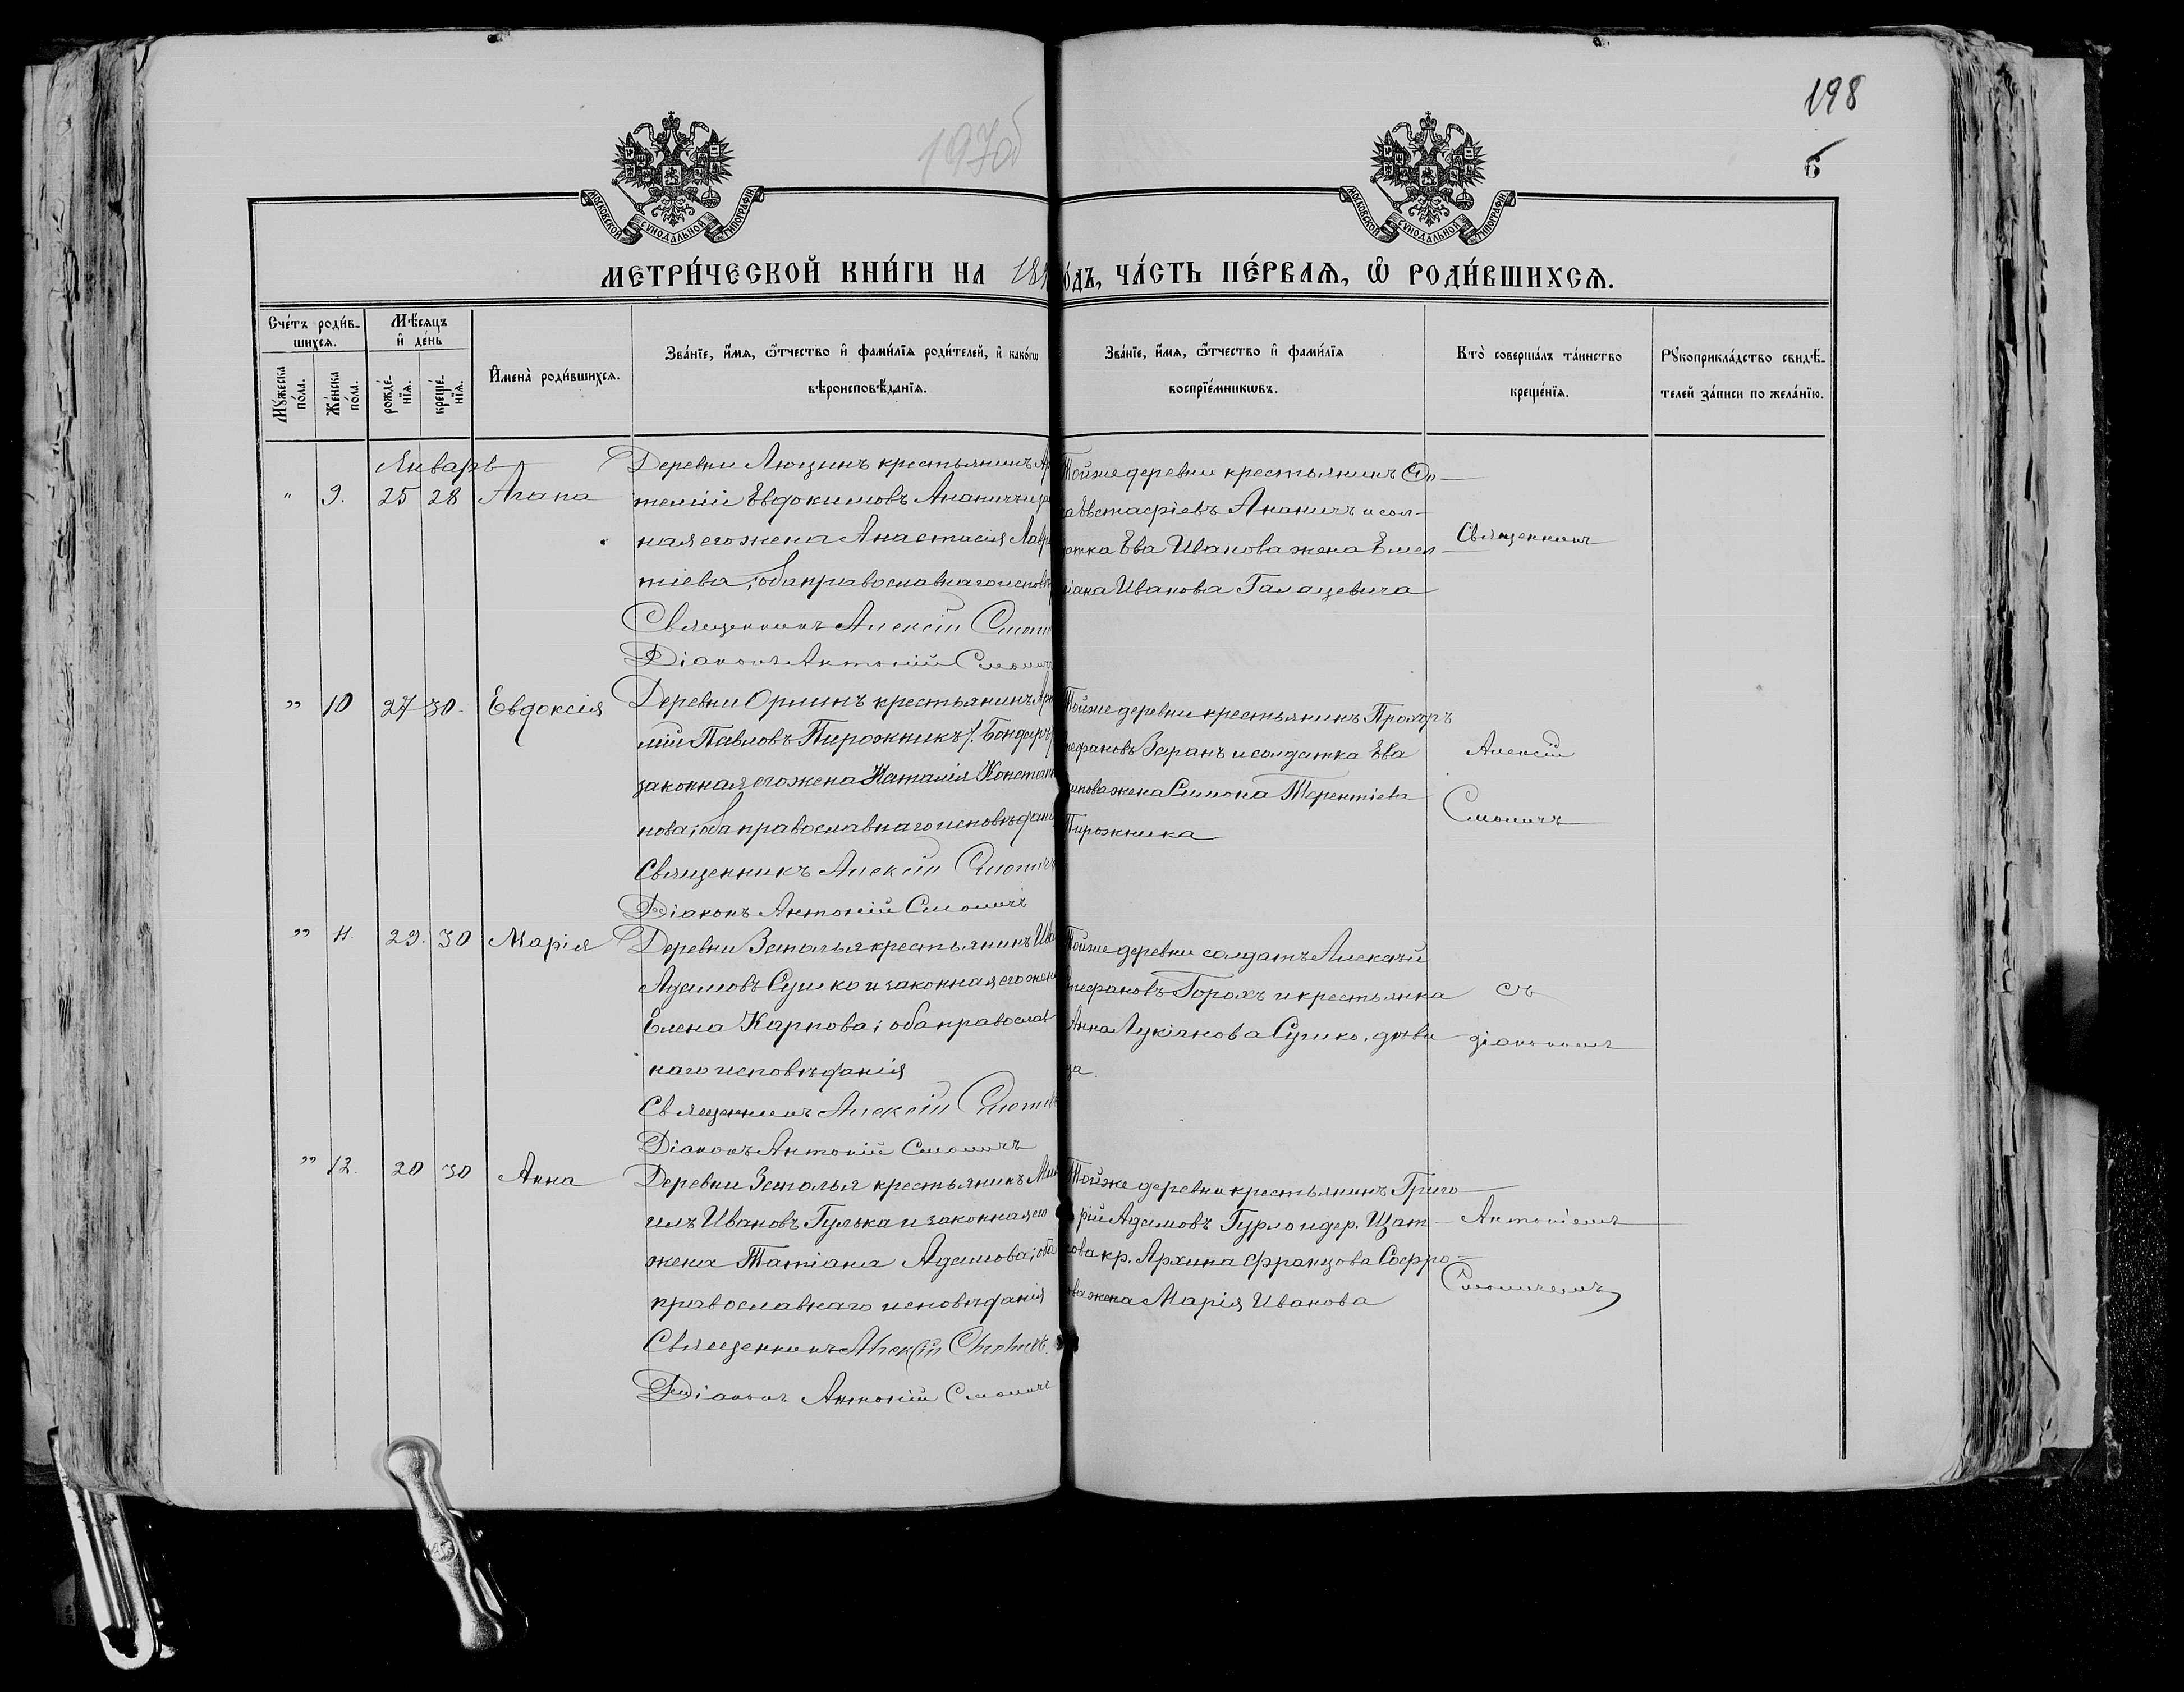 197об
198
6
МОСКОВСКОЙ СѴНОДАЛЬНОЙ ТИПОГРАФІИ
МОСКОВСКОЙ СѴНОДАЛЬНОЙ ТИПОГРАФІИ
МЕТРИ́ЧЕСКОЙ КНИ́ГИ НА 18
О́ДЪ, ЧА́СТЬ ПЕ́РВАѦ, Ѡ҆ РОДИ́ВШИХСѦ.
Сче́тъ роди́в-
шихсѧ.
Мѣ́сѧцъ
и҆ де́нь
Мꙋ́жеска
по́ла.
Же́нска
по́ла.
рожде́-
нїѧ.
креще́-
нїѧ.
И҆мена̀ роди́вшихсѧ.
Зва́нїе, и҆́мѧ, ѻ҆́тчество и҆ фами́лїѧ роди́телей, и҆ како́гѡ
вѣроисповѣ́данїѧ.
Зва́нїе, и҆́мѧ, ѻ҆́тчество и҆ фами́лїѧ
воспрїе́мникѡвъ.
Кто̀ соверша́лъ та́инство
креще́нїѧ.
Рꙋкоприкла́дство свидѣ́-
телей за́писи по жела́нїю.
Январь
" 9. 25 28 Агапа
Деревни Люзинъ крестьянинъ
темій Евдокимовъ Ананичъ и
ная его жена Анастасія Лавр
тіева; оба православнаго исповѣ
Священникъ Алексій Смолич
Діаконъ Антоній Смоличъ
Тойже деревни крестьянинъ
Евстафіевъ Ананичъ и сол-
датка Ева Иванова жена Емел-
іана Иванова Галацевича
" 10 27 30. Евдоксія
Деревни Орлинъ крестьянинъ
мій Павловъ Пирожникъ /. Бондаръ
законная его жена Наталія Констан
нова; оба православнаго исповѣдані
Священникъ Алексій Смоличъ
Діаконъ Антоній Смоличъ
Тойже деревни крестьянинъ Прохоръ
тефановъ Заранъ и солдатка Ева
жена Симона Терентіева
Пирожника
" 11. 29. 30 Марія
Деревни Заполья крестьянинъ Ива
Адамовъ Сушко и законная его жен
Елена Карпова; оба православ
наго исповѣданія
Священникъ Алексій Смолич
Діаконъ Антоній Смоличъ
Тойже деревни солдатъ Алексѣй
Стефановъ Горохъ и крестьянка
Анна Лукіанова Сушко, дѣви
ца.
" 12. 20 30 Анна
Деревни Заполья крестьянинъ Ми
илъ Ивановъ Гулька и законная его
жена Татіана Адамова; оба
православнаго исповѣданія
Священникъ Алексій Смоличъ.
Діаконъ Антоній Смоличъ
Тойже деревни крестьянинъ Григо-
рій Адамовъ Гурло и дер. Щат-
кова кр. Архипа Францова Софро-
ва жена Марія Иванова
Священникъ
Алексій
Смоличъ
съ
діакономъ
Антоніемъ
Смоличемъ